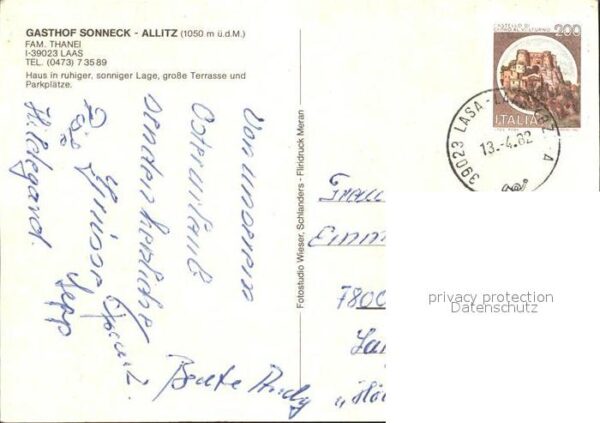 GASTHOF SONNECK - ALLITZ (1050 m ü.d.M.)
FAM. THANEI
I-39023 LAAS
TEL. (0473) 7 35 89
Haus in ruhiger, sonniger Lage, große Terrasse und
Parkplätze.
Von unserem
Osterurlaub
senden herzliche
Grüsse
Sepp
Hildegard.
Beate Andy
Fotostudio Wieser, Schlanders - Flindruck Meran
CASTELLO DI
CERRO AL VOLTURNO
200
ITALIA
39023 LASA-LAAS
13.-4.82
Frau
Emm
7800
"Hö
privacy protection
Datenschutz